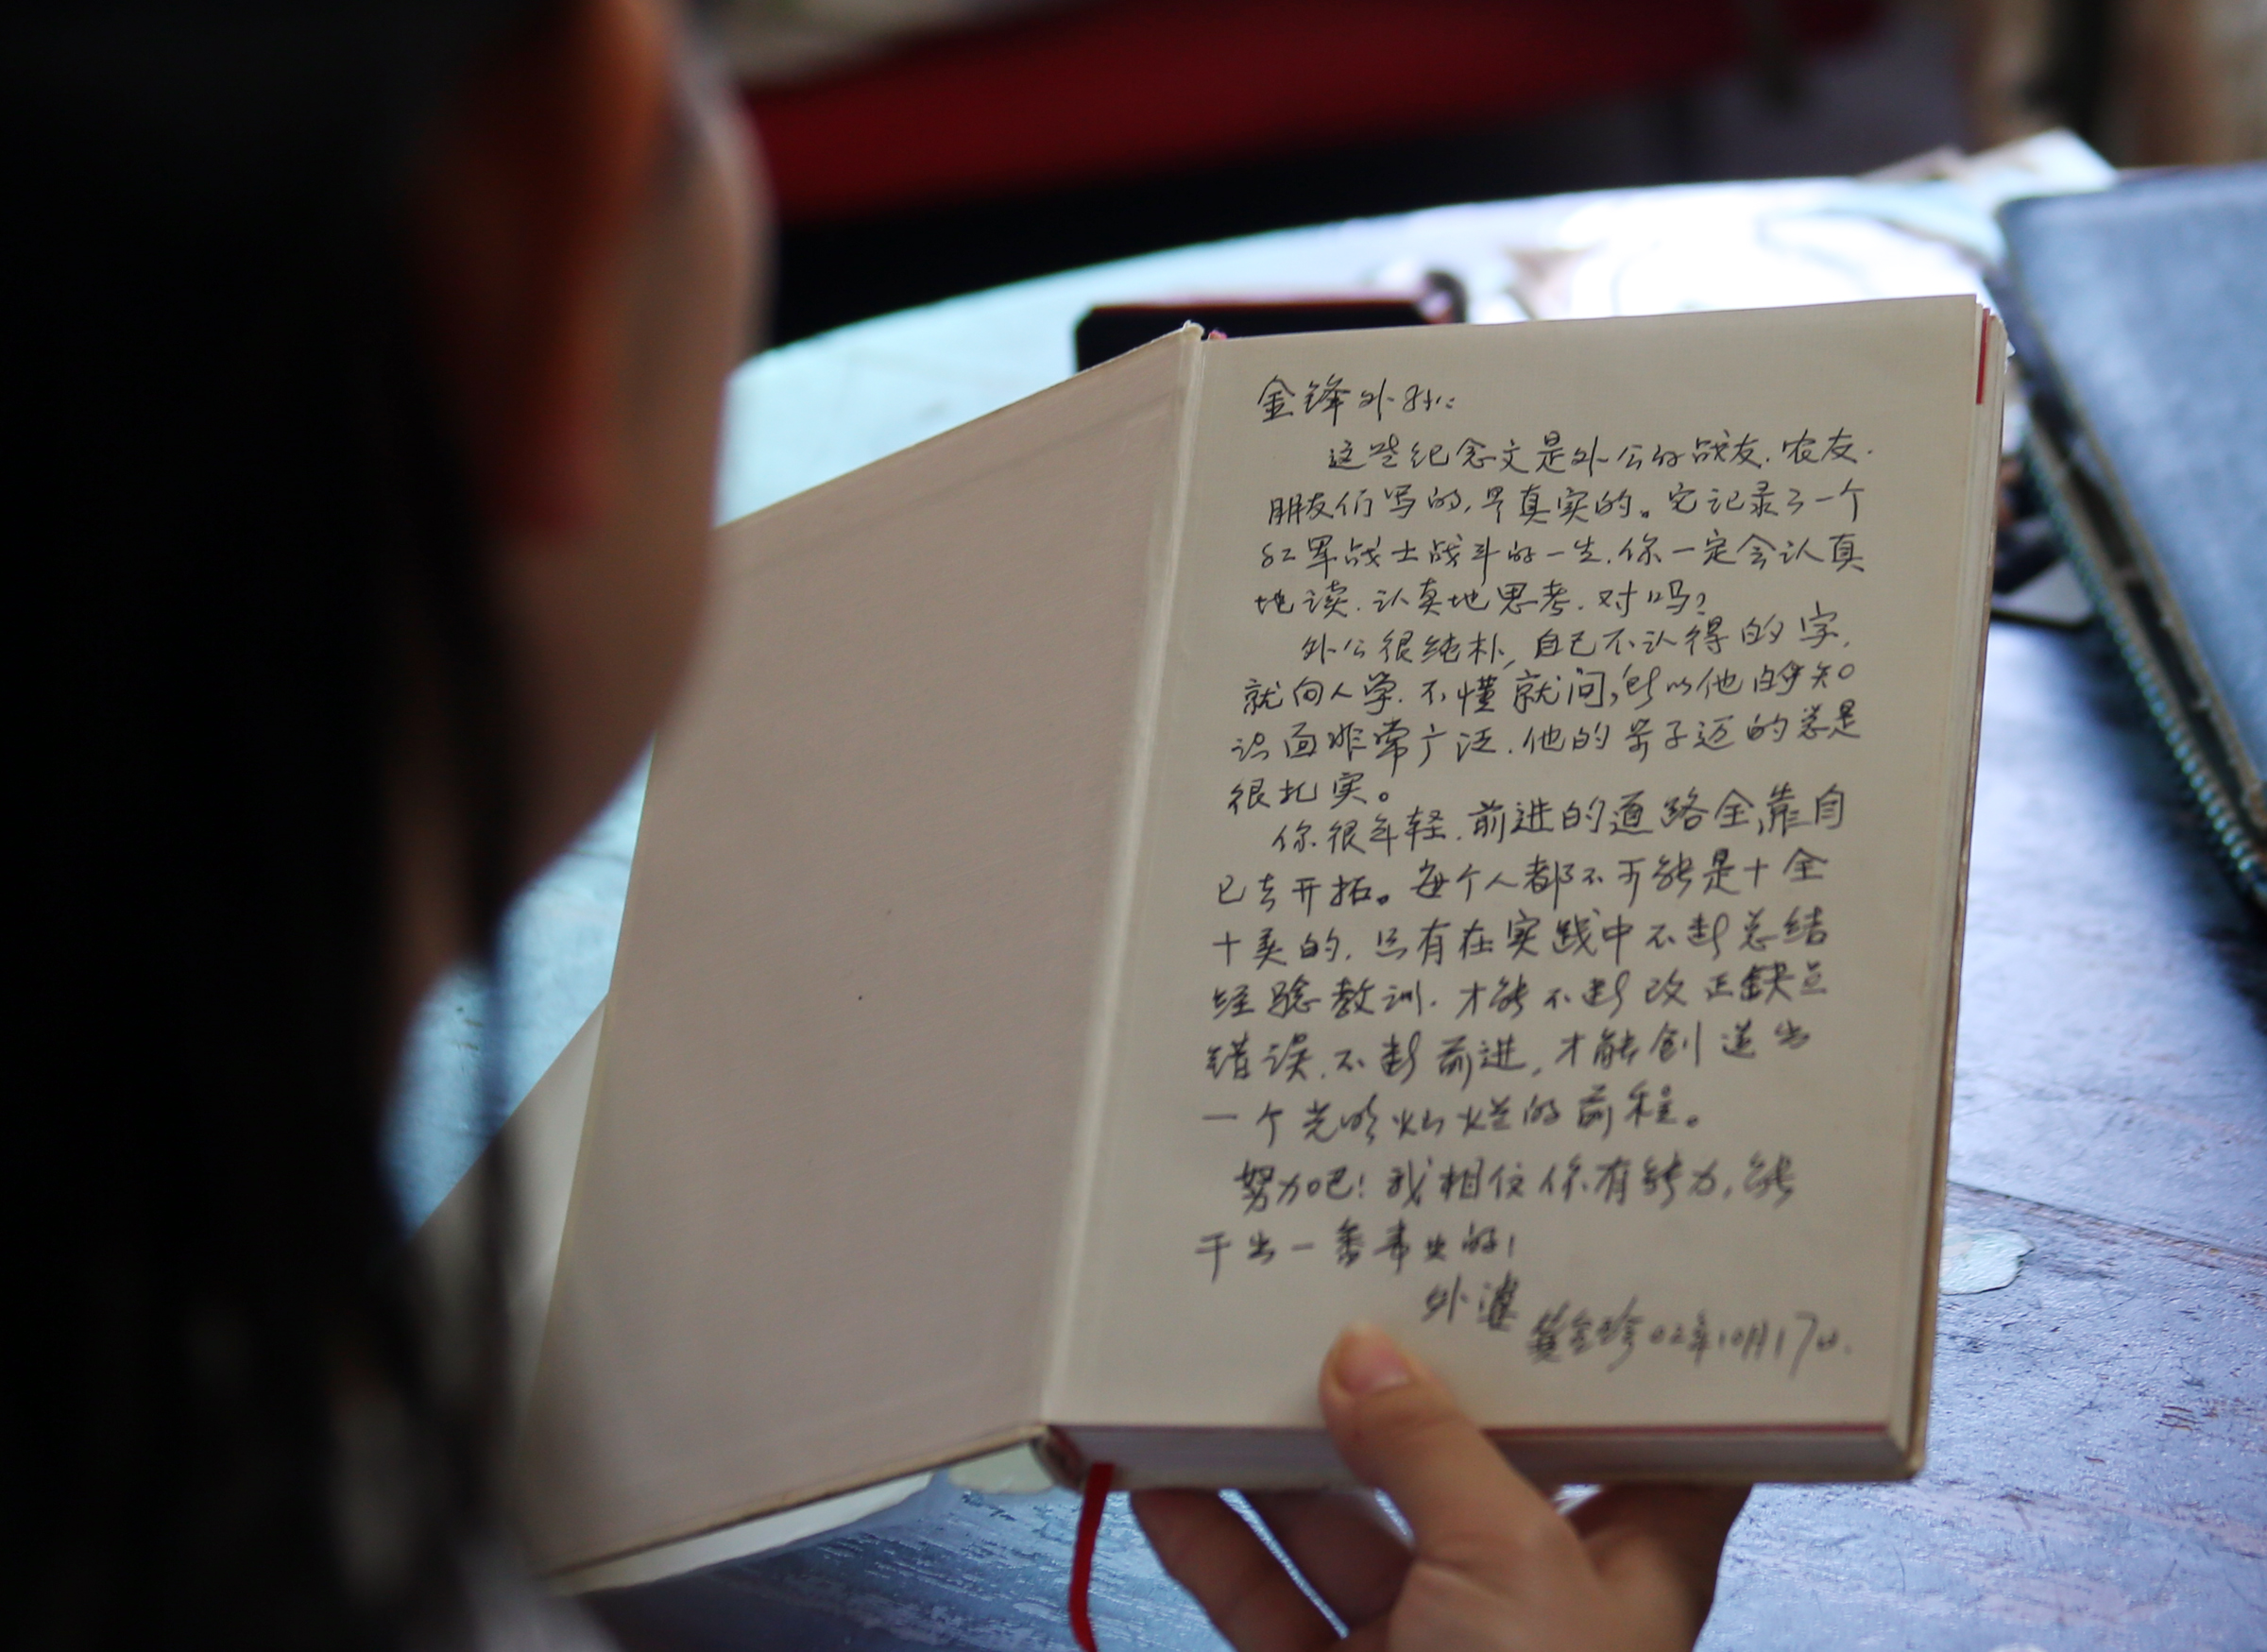 金锋外孙:
这些纪念文是外公的战友.农友.
朋友们写的,是真实的。它记录了一个
红军战士战斗的一生.你一定会认真
地读.认真地思考.对吗?
外公很纯朴,自己不认得的字,
就向人学.不懂就问,所以他的知
识面非常广泛.他的步子迈的总是
很扎实。
你很年轻.前进的道路全靠自
已去开拓。每个人都不可能是十全
十美的.只有在实践中不断总结
经验教训.才能不断改正缺点
错误.不断前进,才能创造出
一个光明灿烂的前程。
努力吧!我相信你有能力,能
干出一番事业的!
外婆
龚全珍02年10月17日.